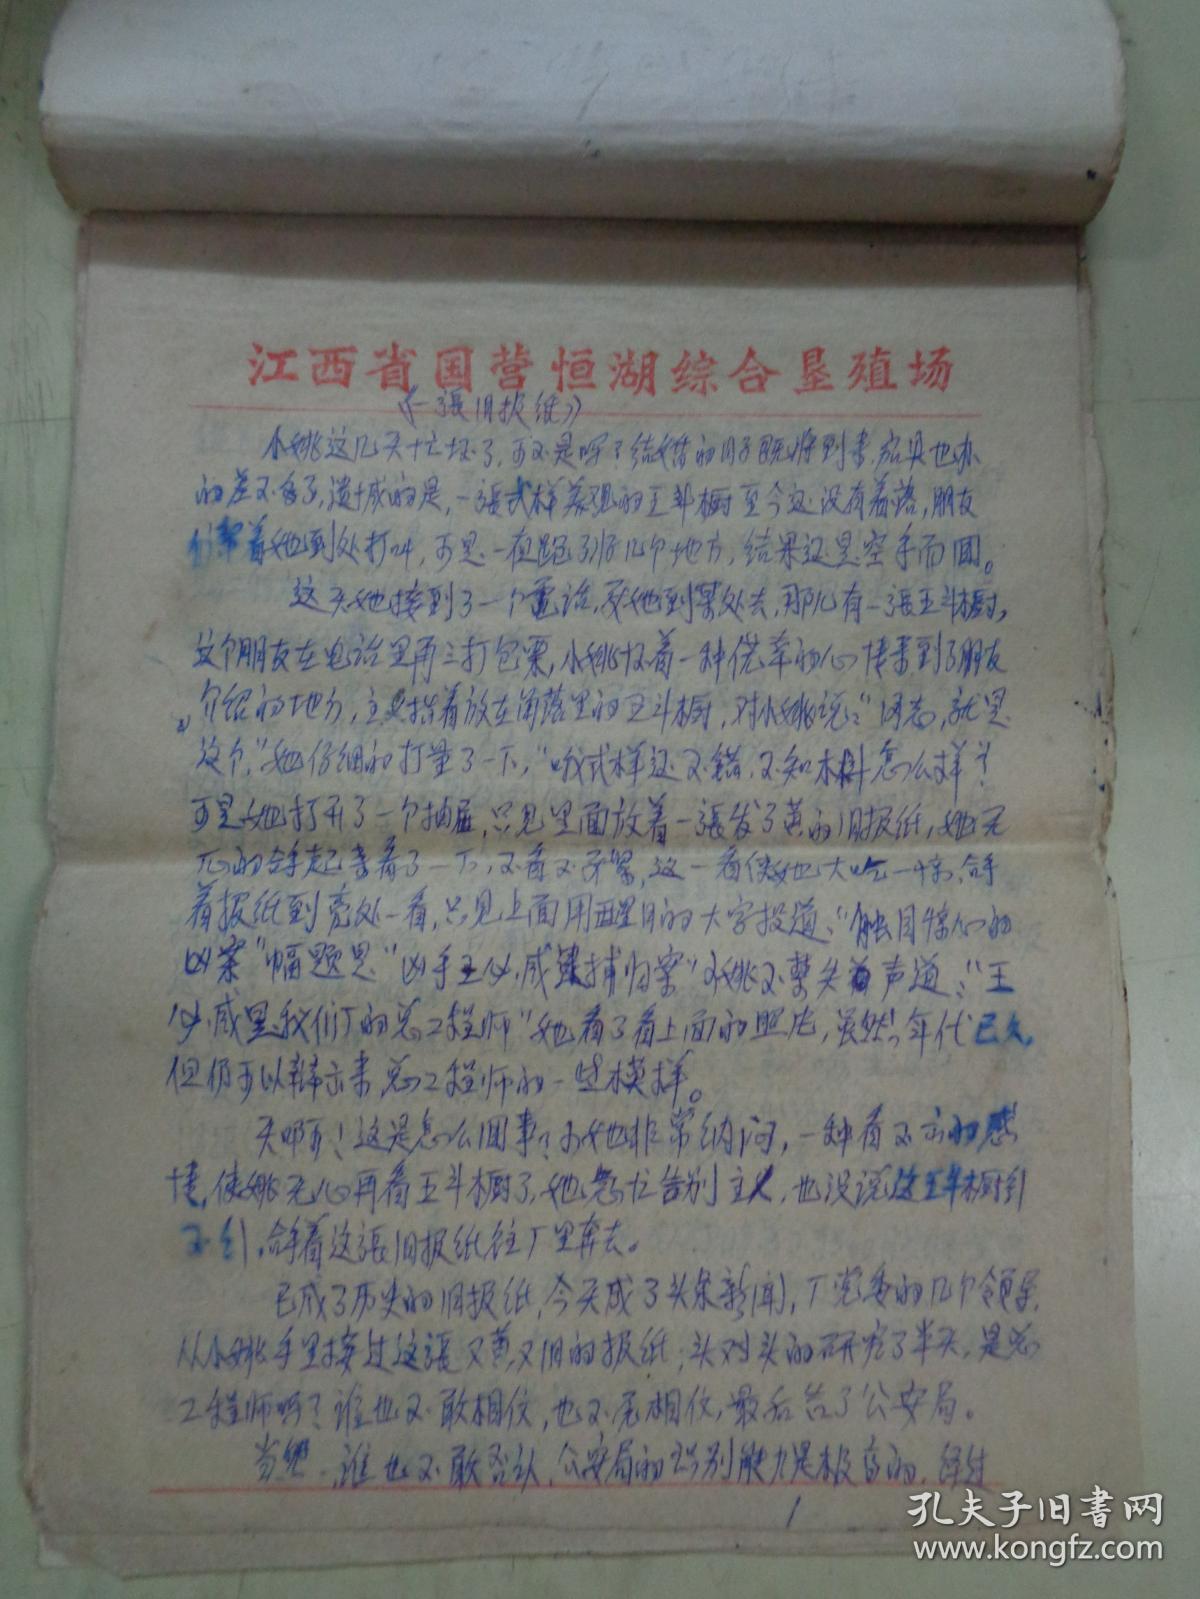 江西省国营恒湖综合垦殖场
《一張旧报纸》
小姚这几天忙坏了，可不是吗？结婚的日子既将到来，家具也办
的差不多了，遗憾的是，一張式样美观的五斗橱至今还没有着落，朋友
们帮着她到处打听，可是一连跑了好几个地方，结果还是空手而回。
这天她接到了一个電话，要她到某处去，那儿有一張五斗橱，
这个朋友在电话里再三打包票，小姚怀着一种侥幸的心情来到了朋友
介绍的地方，主人指着放在角落里的五斗橱，对小姚说：“同志，就是
这个，”她仔细的打量了一下，“哦式样还不错，不知木料怎么样？”
可是她打开了一个抽屉，只见里面放着一張发了黄的旧报纸，她无
心的拿起来看了一下，不看不要紧，这一看使她大吃一惊，拿
着报纸到亮处一看，只见上面用醒目的大字报道：“触目惊心的
凶案”幅题是“凶手王 威逮捕归案”小姚不禁失声道：“王
威是我们厂的总工程师”她看了看上面的照片，虽然年代已久
但仍可以辩出来，总工程师的一些模样。
天哪！这是怎么回事？小姚非常纳闷，一种看不 的感
情，使姚无心再看五斗橱了，她急忙告别主人，也没说这五斗橱到
不 ，拿着这張旧报纸往厂里奔去。
已成了历史的旧报纸，今天成了头条新闻，厂党委的几个领导，
从小姚手里接过这張又黄又旧的报纸，头对头的研究了半天，是总
工程师吗？谁也不敢相信，也不 相信，最后 了公安局。
当然，谁也不敢否认，公安局的识别能力是极高的，经过
1
孔夫子旧书网
www.kongfz.com